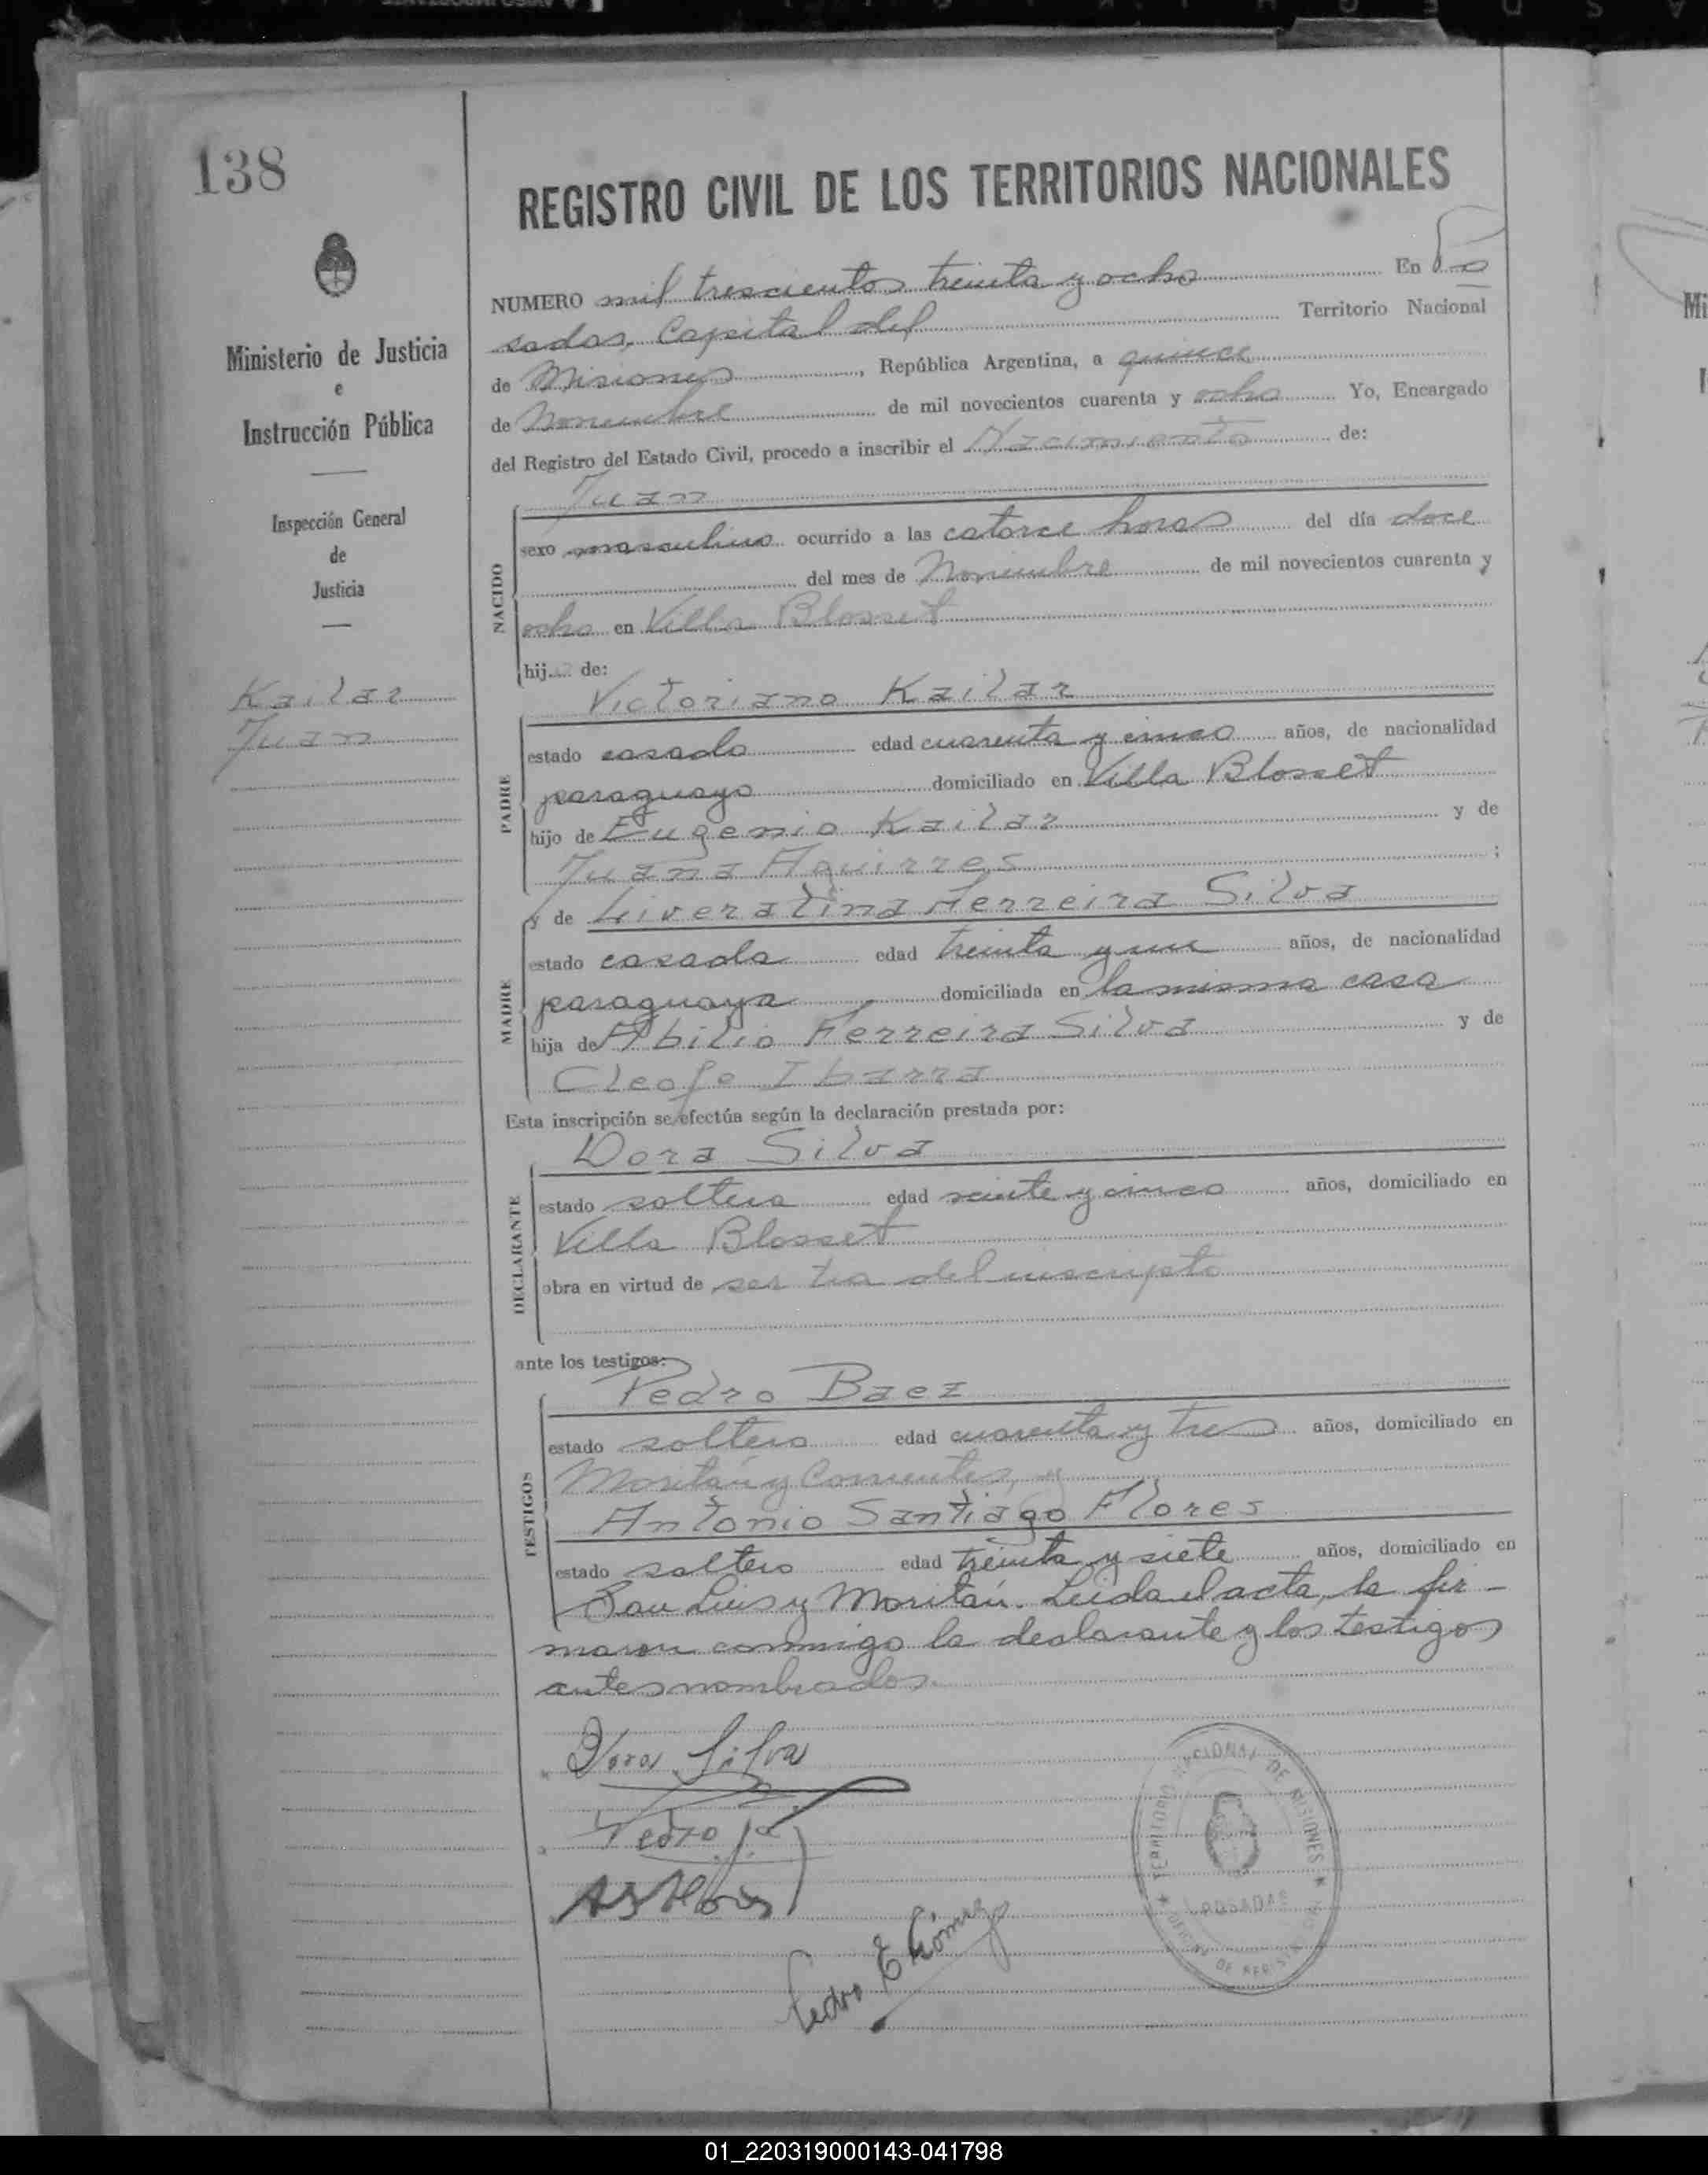 138
Ministerio de Justicia
e
Instrucción Pública
Inspección General
de
Justicia
Kailar
Juan
REGISTRO CIVIL DE LOS TERRITORIOS NACIONALES
NUMERO mil trescientos treinta y ocho En Po
sadas, Capital del Territorio Nacional
de Misiones, República Argentina, a quince
de Noviembre de mil novecientos cuarenta y ocho Yo, Encargado
del Registro del Estado Civil, procedo a inscribir el Nacimiento de:
Juan
NACIDO
sexo masculino ocurrido a las catorce horas del día doce
del mes de Noviembre de mil novecientos cuarenta y
ocho en Villa Blosset
hijo de:
Victoriano Kailar
PADRE
estado casado edad cuarenta y cinco años, de nacionalidad
paraguayo domiciliado en Villa Blosset
hijo de Eugenio Kailar y de
Juana Aguirres;
y de Liveratina Ferreira Silva
MADRE
estado casada edad treinta y un años, de nacionalidad
paraguaya domiciliada en la misma casa
hija de Abilio Ferreira Silva y de
Cleofe Ibarra
Esta inscripción se efectúa según la declaración prestada por:
Dora Silva
DECLARANTE
estado soltera edad veinte y cinco años, domiciliado en
Villa Blosset
obra en virtud de ser tia del inscripto
ante los testigos:
Pedro Baez
TESTIGOS
estado soltero edad cuarenta y tres años, domiciliado en
Moritán y Corrientes, y
Antonio Santiago Flores
estado soltero edad treinta y siete años, domiciliado en
San Luis y Moritán. Leida el acta, la fir-
maron conmigo la declarante y los testigos
antes nombrados.
Dora Silva
Pedro
Pedro E Gómez
TERRITORIO NACIONAL DE MISIONES
POSADAS
01_220319000143-041798